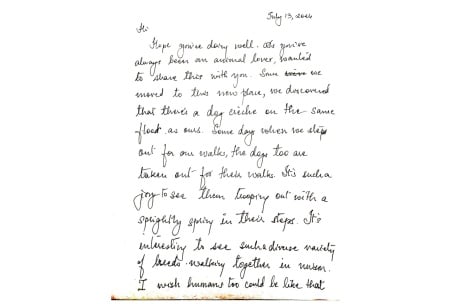 July 13, 2024
Hi
Hope you're doing well. As you've
always been an animal lover, wanted
to share this with you. Since we
moved to this new place, we discovered
that there's a dog crèche on the same
floor as ours. Some days when we step
out for our walks, the dogs too are
taken out for their walks. It's such a
joy to see them trooping out with a
sprightly spring in their steps. It's
interesting to see such diverse variety
of breeds walking together in unison.
I wish humans too could be like that